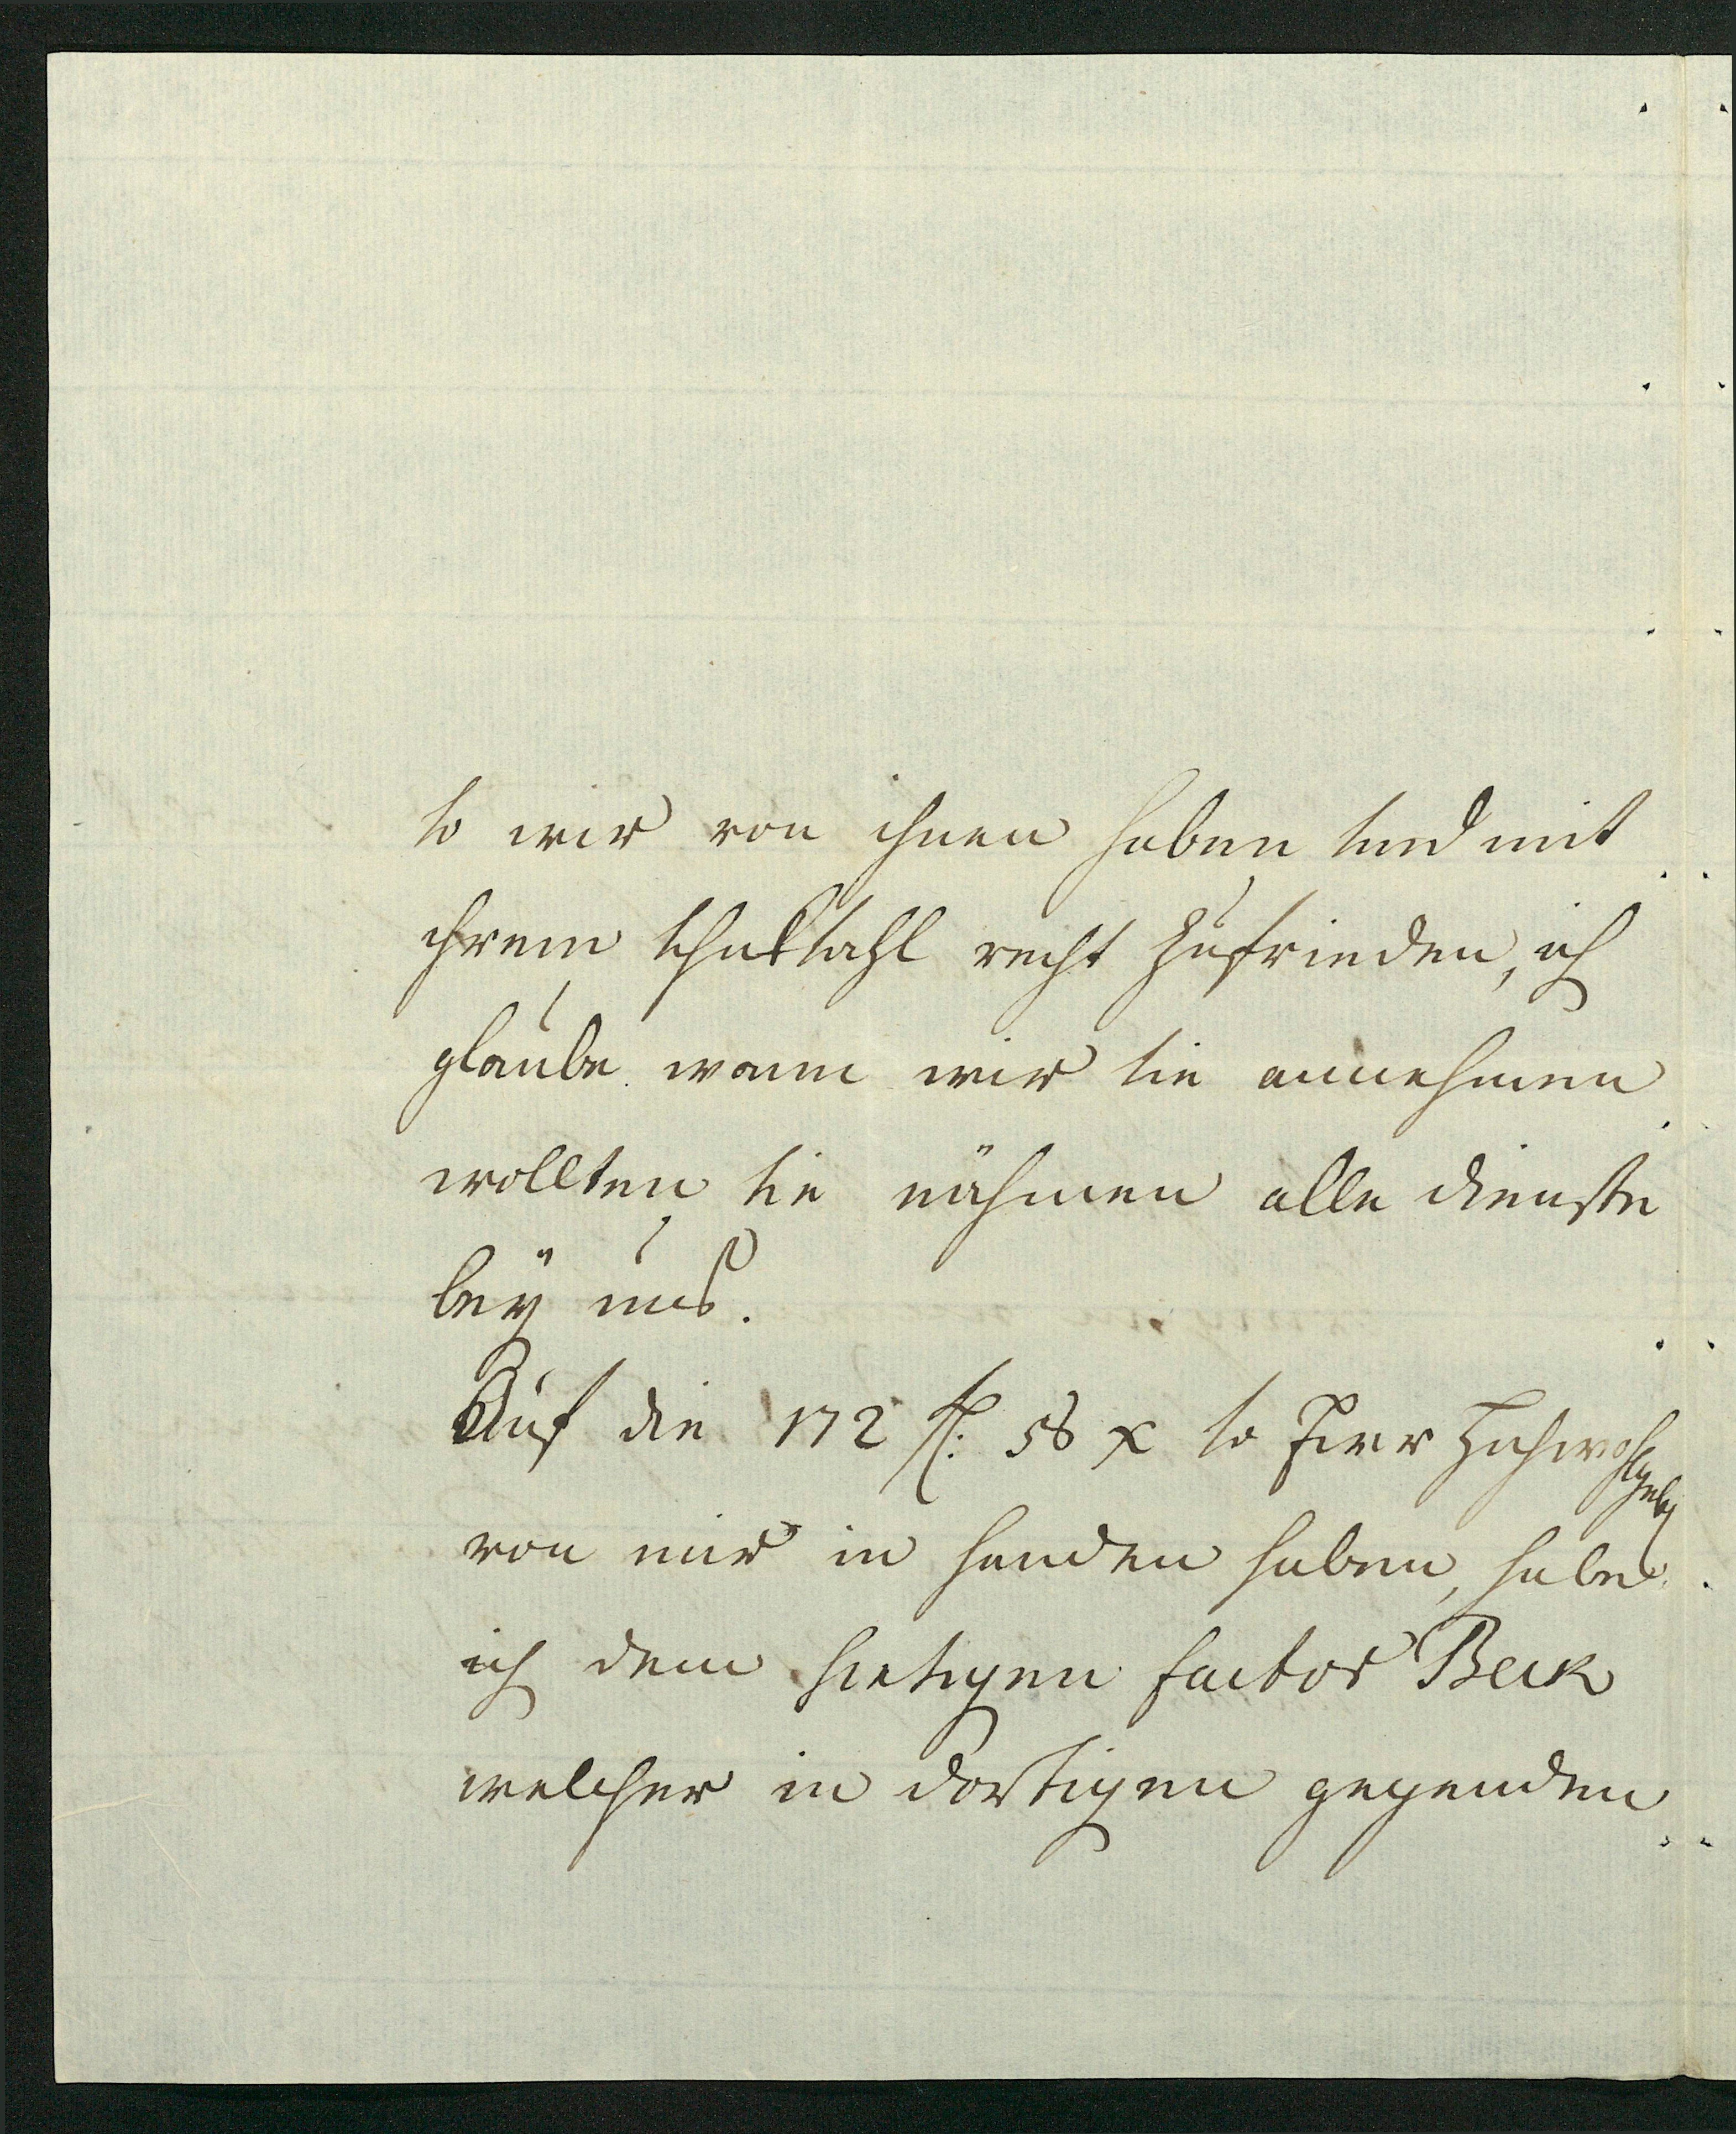 so wir von ihnen haben sind mit
ihrem schiksahl recht zufrieden, ich
glaube wann wir sie annehmen
wollten sie nähmen alle dienste
beÿ uns.
Auf die 172 fl: 58 x so Euer Hochwohlgeb
von mir in handen haben, habe
ich dem hiesigen factor Beck
welcher in dortigen gegenden